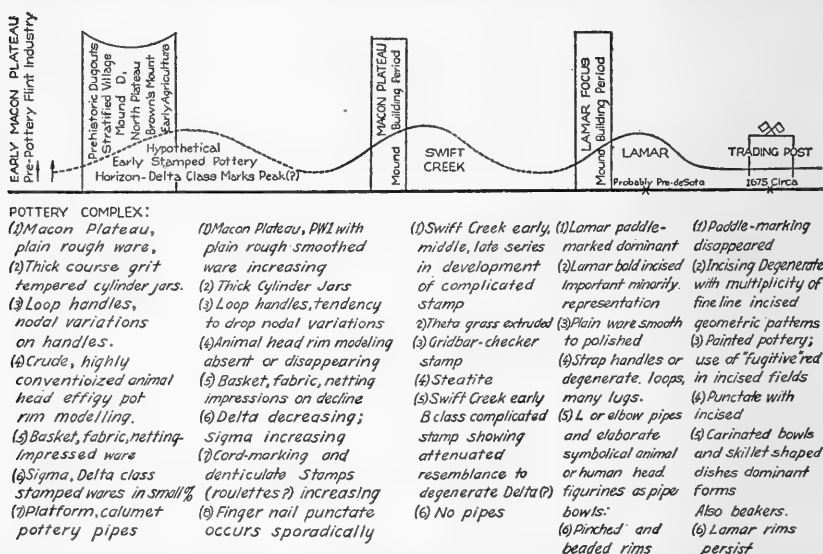 EARLY MACON PLATEAU
Pre-Pottery Flint Industry
Prehistoric Dugouts
Stratified Village
Mound D,
North Plateau
Brown's Mount
Early Agriculture
Hypothetical
Early Stamped Pottery
Horizon-Delta Class Marks Peak(?)
MACON PLATEAU
Mound Building Period
SWIFT
CREEK
LAMAR FOCUS
Mound Building Period
LAMAR
Probably Pre-deSota
TRADING POST
1675 Circa
POTTERY COMPLEX:
(1)Macon Plateau,
plain rough ware.
(2)Thick course grit
tempered cylinder jars.
(3)Loop handles,
nodal variations
on handles.
(4)Crude, highly
conventioized animal
head effigy pot
rim modelling.
(5)Basket, fabric, netting-
impressed ware
(6)Sigma, Delta class
stamped wares in small %
(7)Platform, calumet
pottery pipes
(1)Macon Plateau, PW1 with
plain rough smoothed
ware increasing
(2) Thick Cylinder Jars
(3) Loop handles, tendency
to drop nodal variations
(4)Animal head rim modeling
absent or disappearing
(5) Basket, fabric, netting
impressions on decline
(6) Delta decreasing;
sigma increasing
(7)Cord-marking and
denticulate Stamps
(roulettes?) increasing
(8)Finger nail punctate
occurs sporadically
(1)Swift Creek early,
middle, late series
in development
of complicated
stamp
2)Theta grass extruded
(3)Gridbar-checker
stamp
(4)Steatite
(5)Swift Creek early
B class complicated
stamp showing
attenuated
resemblance to
degenerate Delta(?)
(6) No pipes
(1)Lamar paddle-
marked dominant
(2)Lamar bold incised
Important minorify.
representation
(3)Plain ware smooth
to polished
(4)Strap handles or
degenerate. loops,
many lugs.
(5) L or elbow pipes
and elaborate
symbolical animal
or human head
figurines as pipe
bowls:
(6)Pinched and
beaded rims
(1)Paddle-marking
disappeared
(2)Incising Degenerate
with multiplicity of
fine line incised
geometric patterns
(3)Painted pottery;
use of "fugitive" red
in incised fields
(4)Punctate with
incised
(5)Carinated bowls
and skillet shaped
dishes dominant
forms
Also beakers.
(6) Lamar rims
persist